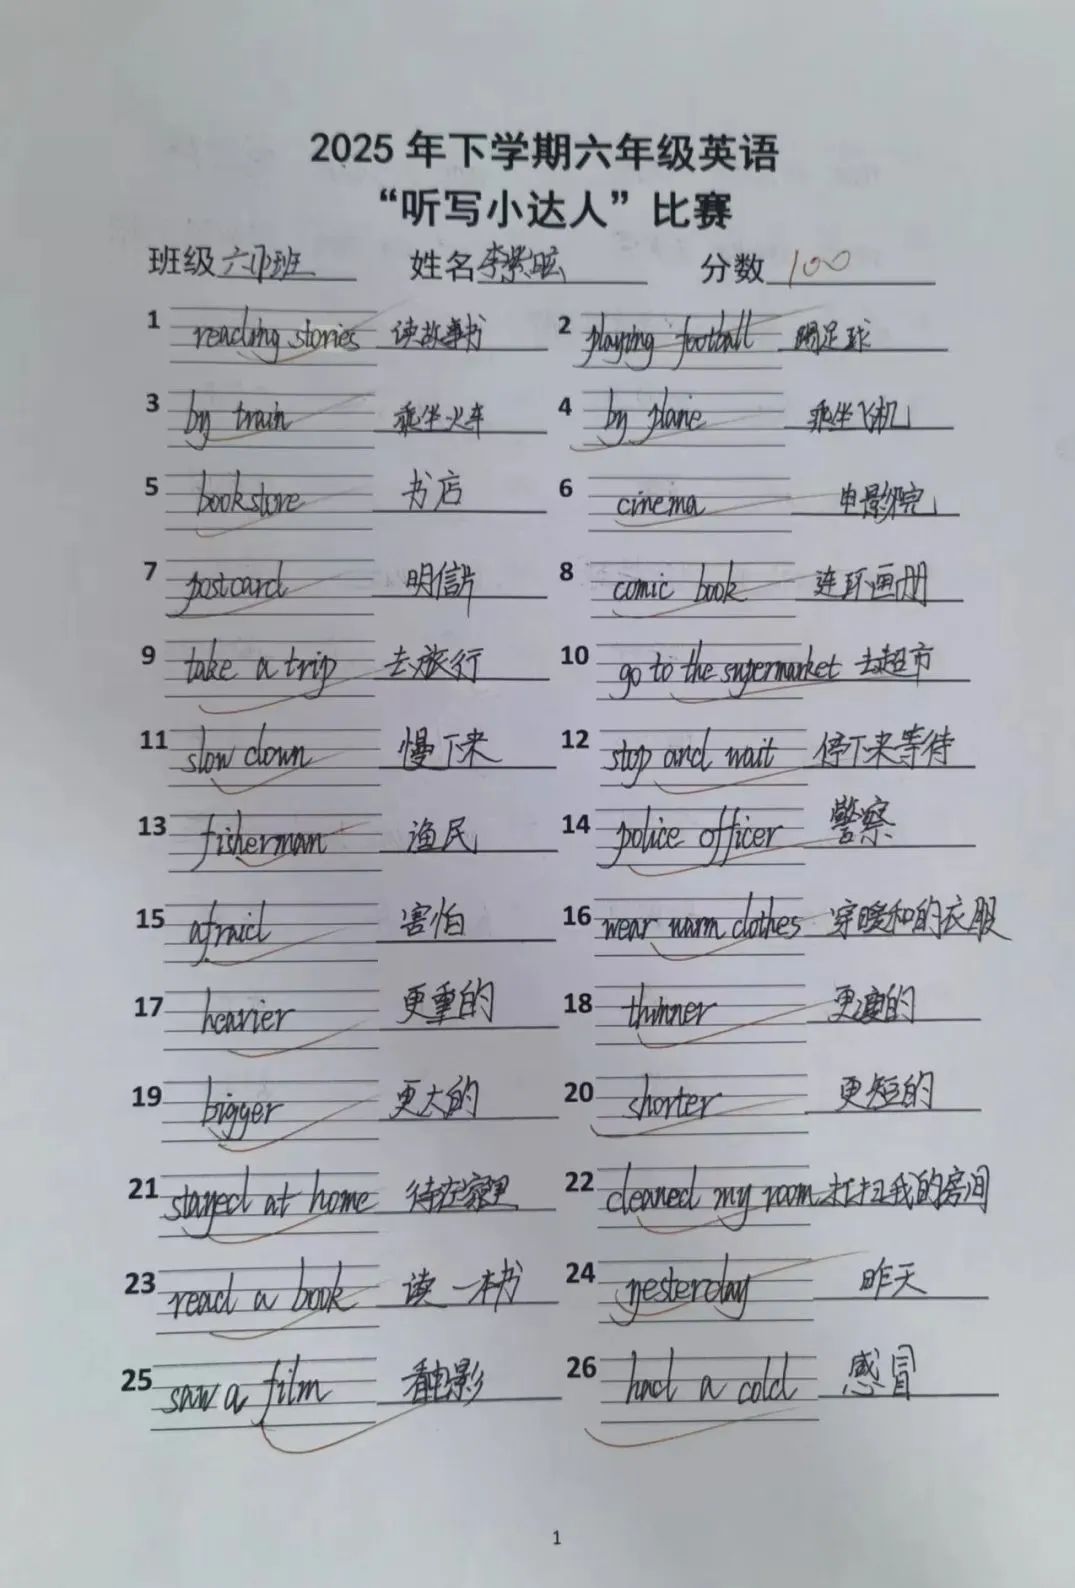 2025 年下学期六年级英语
“听写小达人”比赛
班级 班 姓名 李 分数 100
1 reading stories 读故事书 2 playing football 踢足球
3 by train 乘坐火车 4 by plane 乘坐飞机
5 bookstore 书店 6 cinema 电影院
7 postcard 明信片 8 comic book 连环画册
9 take a trip 去旅行 10 go to the supermarket 去超市
11 slow down 慢下来 12 stop and wait 停下来等待
13 fisherman 渔民 14 police officer 警察
15 afraid 害怕 16 wear warm clothes 穿暖和的衣服
17 heavier 更重的 18 thinner 更瘦的
19 bigger 更大的 20 shorter 更短的
21 stayed at home 待在家里 22 cleaned my room 打扫我的房间
23 read a book 读一本书 24 yesterday 昨天
25 saw a film 看电影 26 had a cold 感冒
1